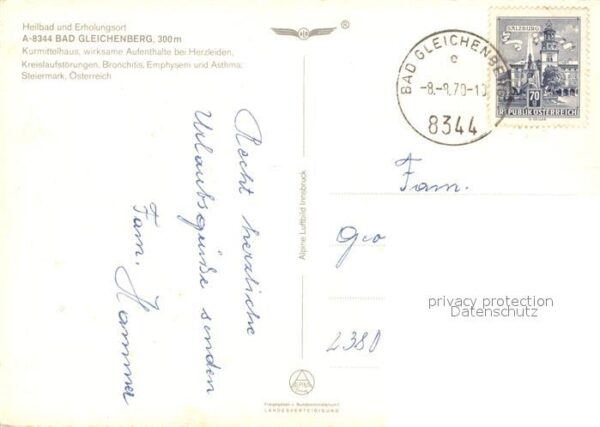 Heilbad und Erholungsort
A-8344 BAD GLEICHENBERG, 300m
Kurmittelhaus, wirksame Aufenthalte bei Herzleiden,
Kreislaufstörungen, Bronchitis, Emphysem und Asthma.
Steiermark, Österreich
Recht herzliche
Urlaubsgrüße senden
Fam. Hammer
Alpine Luftbild Innsbruck
ALPINE
Freigegeben v. Bundesministerium f.
LANDESVERTEIDIGUNG
BAD GLEICHENBERG
c
70-10
8344
SALZBURG
S 70
REPUBLIK ÖSTERREICH
Fam.
Geo
2380
privacy protection
Datenschutz